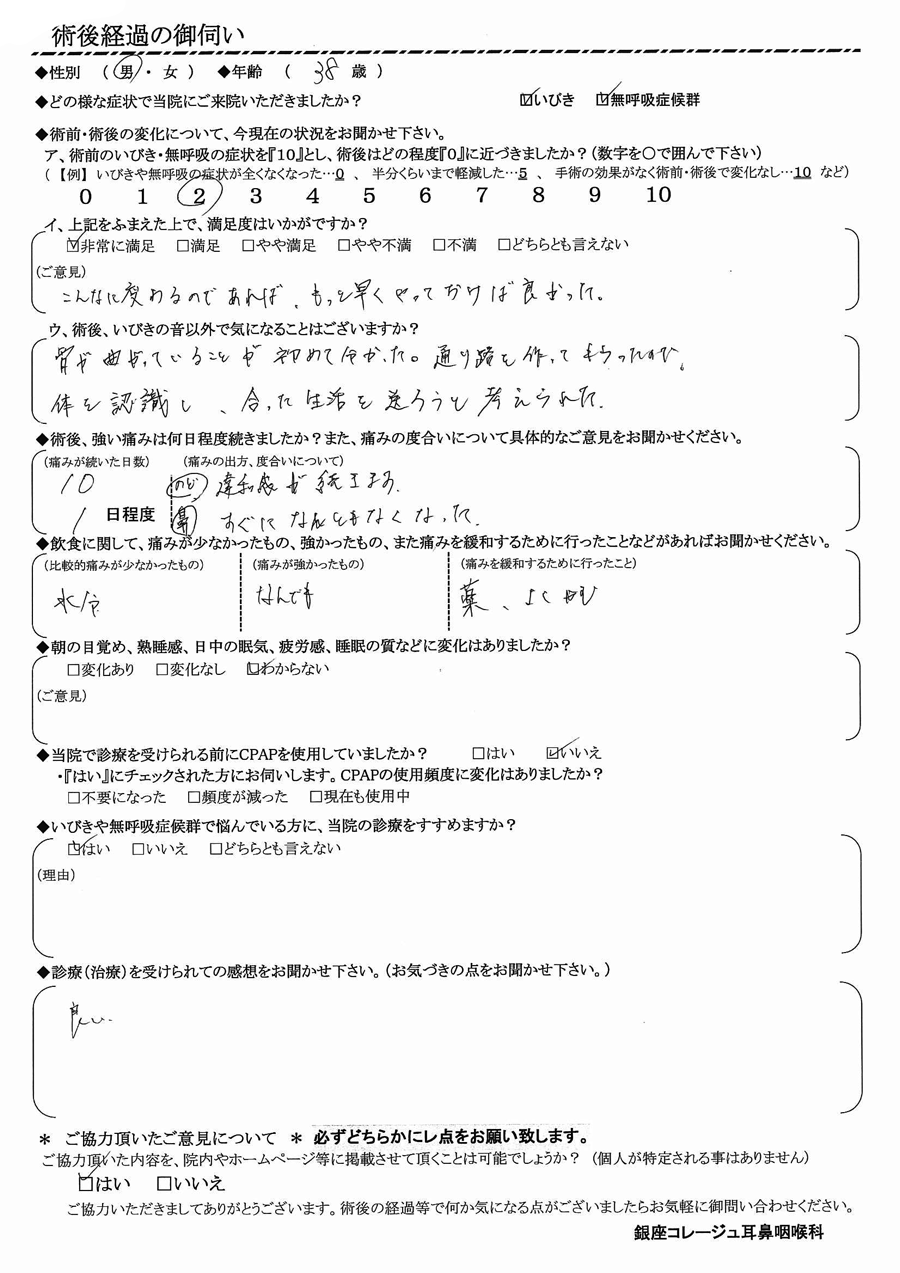 術後経過の御伺い
◆性別 （ 男 ・ 女 ） ◆年齢 （ 38 歳 ）
◆どの様な症状で当院にご来院いただきましたか？ ☑いびき ☑無呼吸症候群
◆術前・術後の変化について、今現在の状況をお聞かせ下さい。
ア、術前のいびき・無呼吸の症状を『10』とし、術後はどの程度『0』に近づきましたか？（数字を〇で囲んで下さい）
（ 【例】 いびきや無呼吸の症状が全くなくなった…0 、 半分くらいまで軽減した…5 、 手術の効果がなく術前・術後で変化なし…10 など）
0 1 2 3 4 5 6 7 8 9 10
イ、上記をふまえた上で、満足度はいかがですか？
☑非常に満足 □満足 □やや満足 □やや不満 □不満 □どちらとも言えない
（ご意見）
こんなに変わるのであれば、もっと早くやっておけば良かった。
ウ、術後、いびきの音以外で気になることはございますか？
骨が曲がっていることが初めて分かった。通り路を作ってもらったので、
体を認識し、合った生活を送ろうと考えられた。
◆術後、強い痛みは何日程度続きましたか？また、痛みの度合いについて具体的なご意見をお聞かせください。
（痛みが続いた日数） （痛みの出方、度合いについて）
10 のど 違和感が続きます。
1 日程度 鼻 すぐになんともなくなった。
◆飲食に関して、痛みが少なかったもの、強かったもの、また痛みを緩和するために行ったことなどがあればお聞かせください。
（比較的痛みが少なかったもの） （痛みが強かったもの） （痛みを緩和するために行ったこと）
水分 なんでも 薬、よくかむ
◆朝の目覚め、熟睡感、日中の眠気、疲労感、睡眠の質などに変化はありましたか？
□変化あり □変化なし ☑わからない
（ご意見）
◆当院で診療を受けられる前にCPAPを使用していましたか？ □はい ☑いいえ
・『はい』にチェックされた方にお伺いします。CPAPの使用頻度に変化はありましたか？
□不要になった □頻度が減った □現在も使用中
◆いびきや無呼吸症候群で悩んでいる方に、当院の診療をすすめますか？
☑はい □いいえ □どちらとも言えない
（理由）
◆診療（治療）を受けられての感想をお聞かせ下さい。（お気づきの点をお聞かせ下さい。）
良い。
＊ ご協力頂いたご意見について ＊ 必ずどちらかにレ点をお願い致します。
ご協力頂いた内容を、院内やホームページ等に掲載させて頂くことは可能でしょうか？ （個人が特定される事はありません）
☑はい □いいえ
ご協力いただきましてありがとうございます。術後の経過等で何か気になる点がございましたらお気軽に御問い合わせください。
銀座コレージュ耳鼻咽喉科